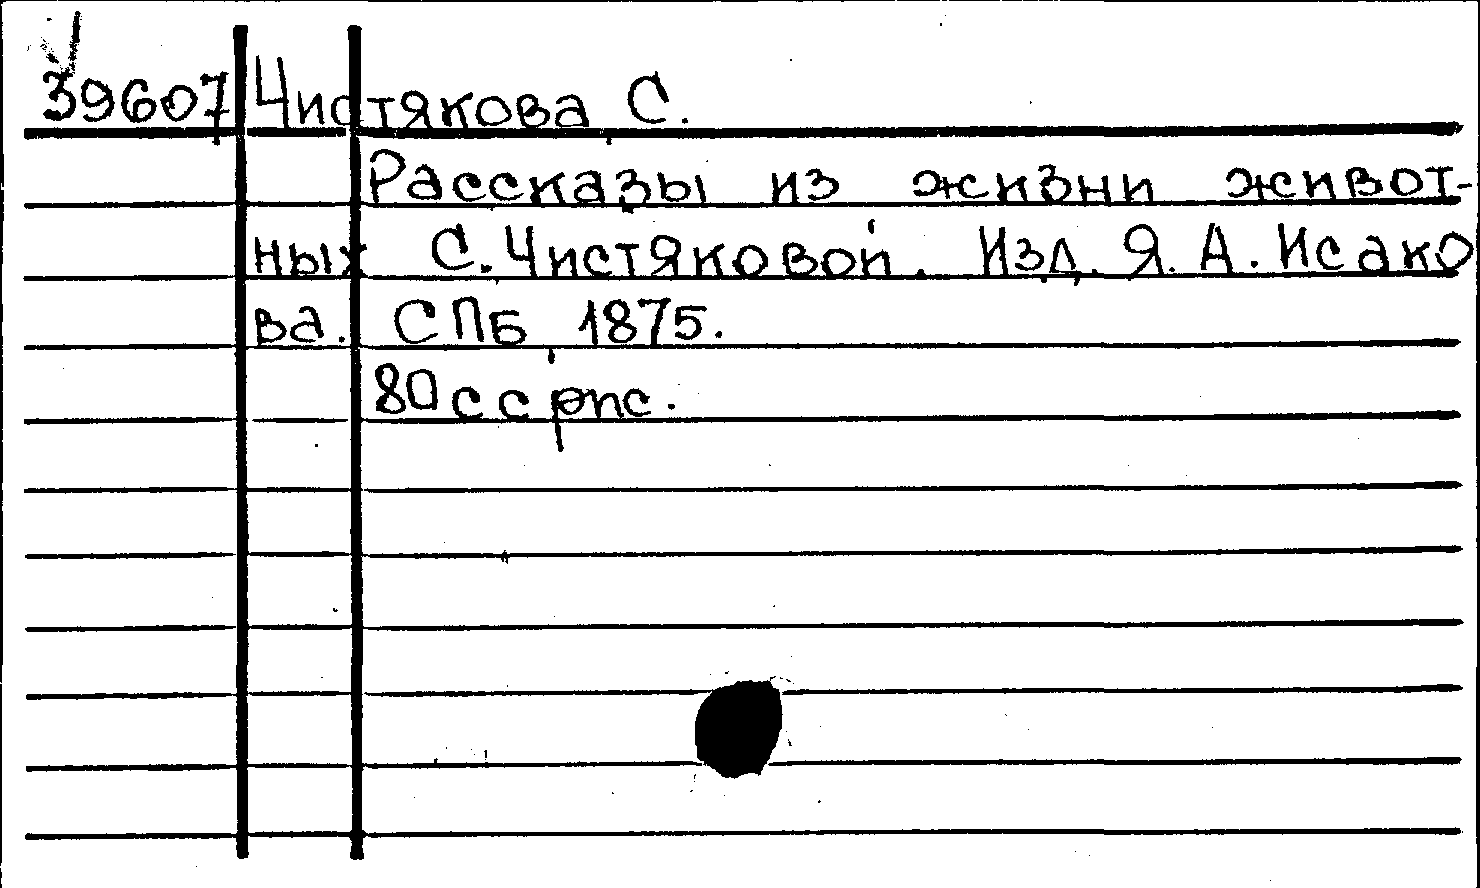 39607 Чистякова, С.
Рассказы из жизни живот-
ных С. Чистяковой. Изд. Я. А. Исако
ва. СПБ, 1875.
80 с с рис.